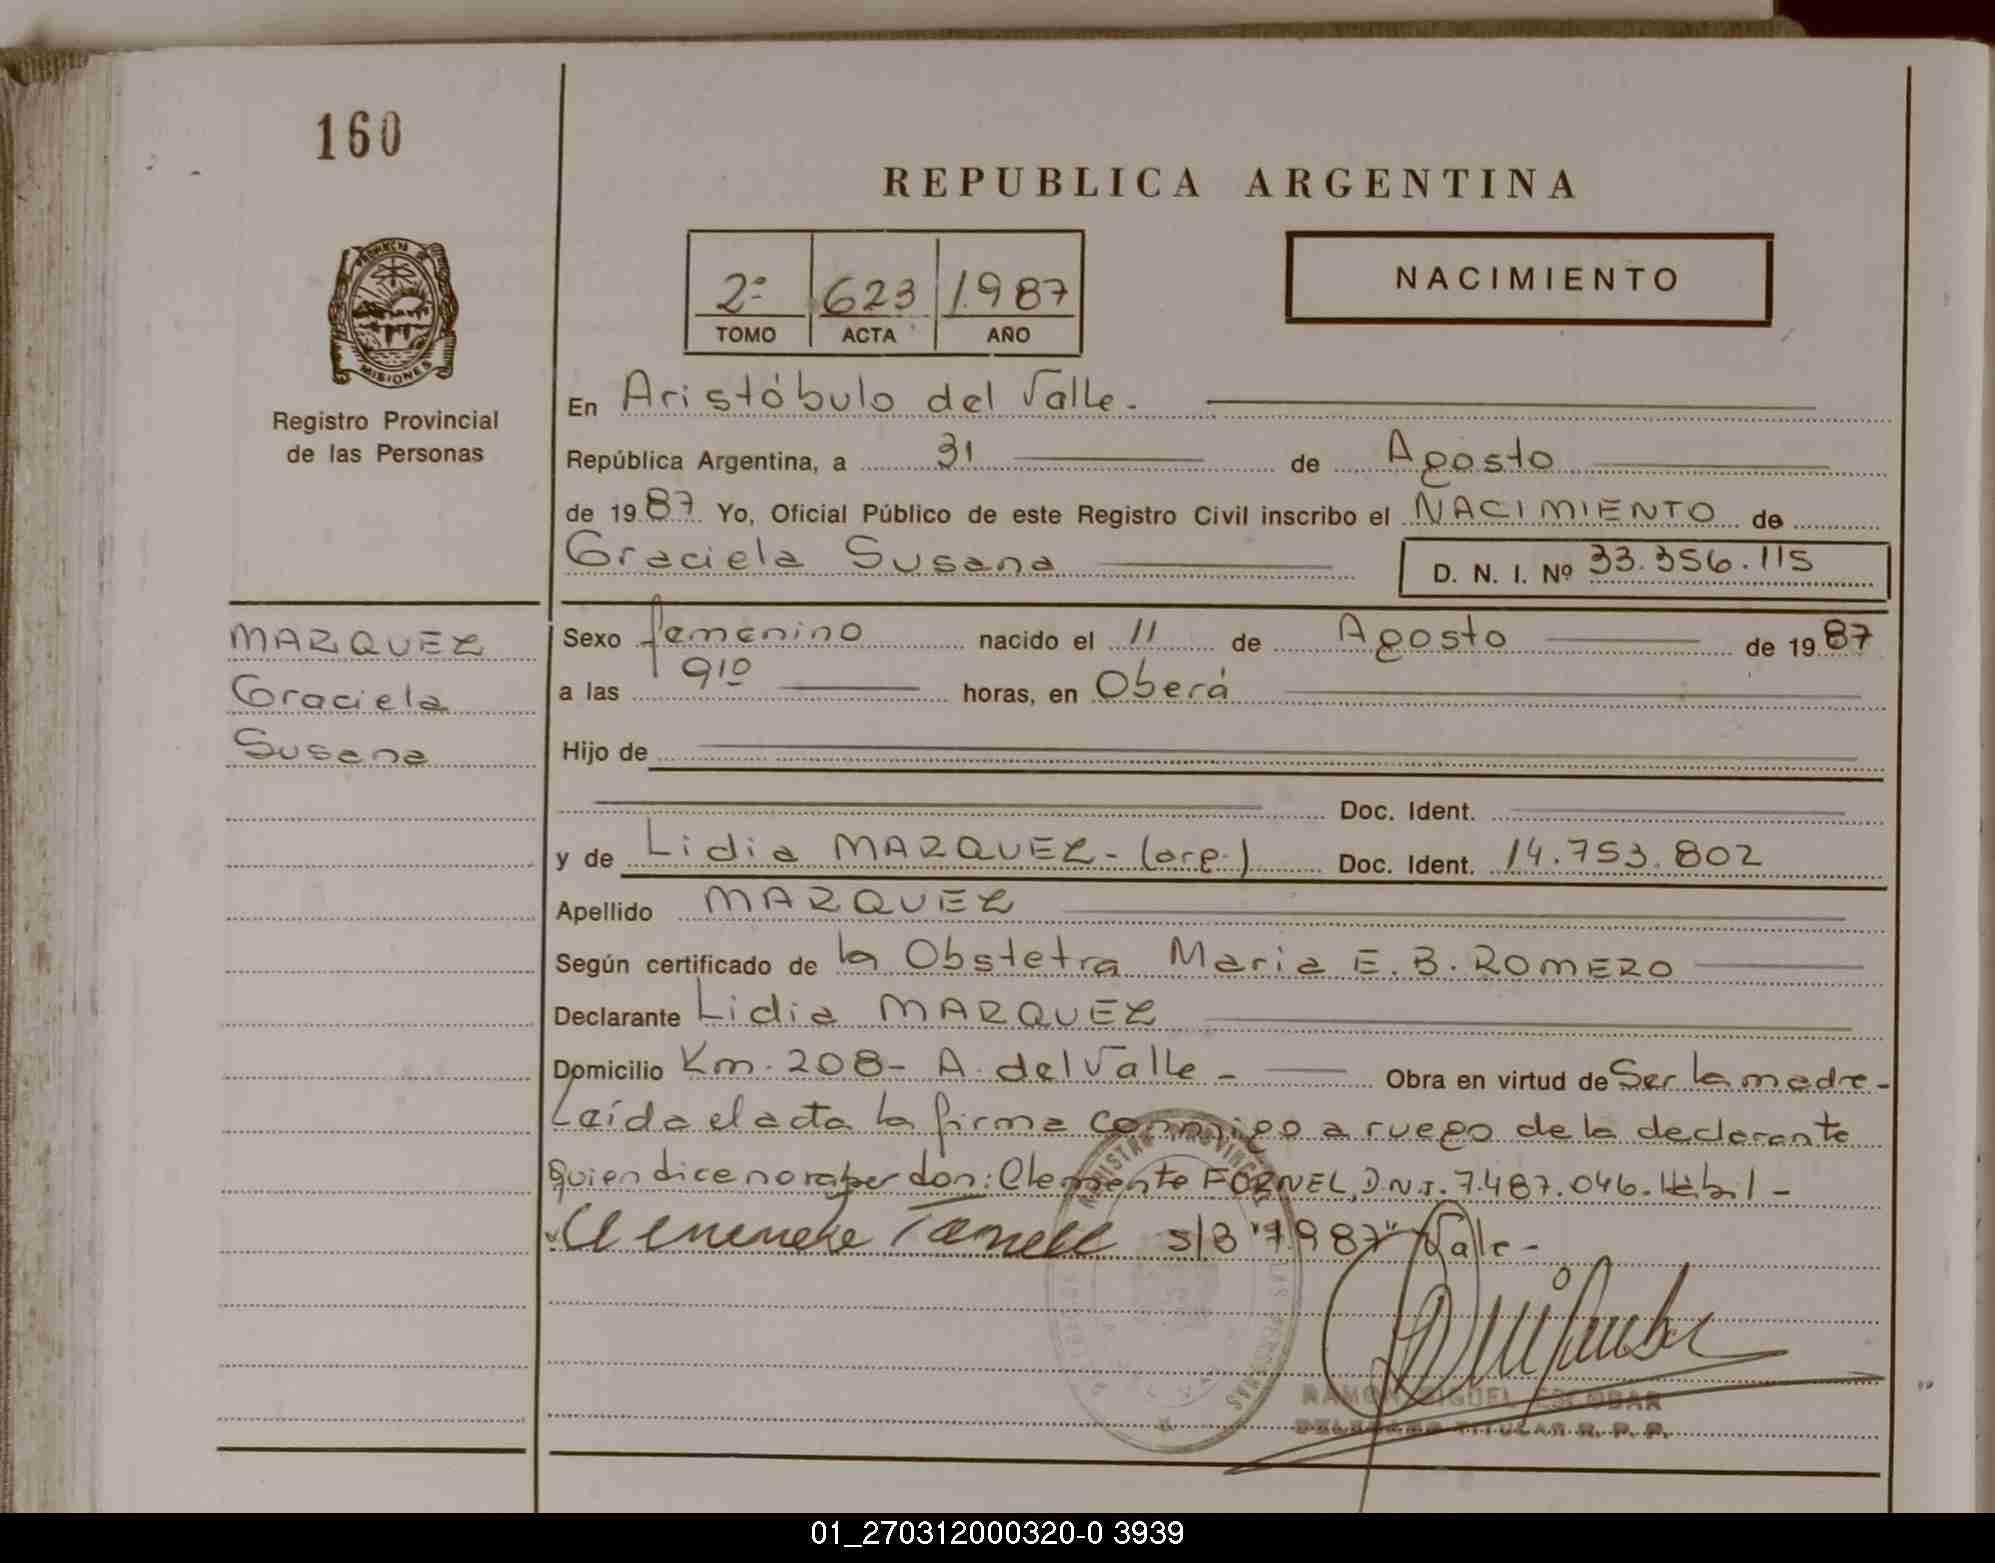 160
REPUBLICA ARGENTINA
PROVINCIA DE
MISIONES
Registro Provincial
de las Personas
2º 623 1987
TOMO ACTA AÑO
NACIMIENTO
En Aristóbulo del Valle.-
República Argentina, a 31 de Agosto
de 1987 Yo, Oficial Público de este Registro Civil inscribo el NACIMIENTO de
Graciela Susana D. N. I. Nº 33.356.115
MARQUEZ
Graciela
Susana
Sexo femenino nacido el 11 de Agosto de 1987
a las 9¹⁰ horas, en Oberá
Hijo de
Doc. Ident.
y de Lidia MARQUEZ - (arg.) Doc. Ident. 14.753.802
Apellido MARQUEZ
Según certificado de la Obstetra Maria E. B. ROMERO
Declarante Lidia MARQUEZ
Domicilio Km. 208 - A. del Valle - Obra en virtud de Ser la madre -
Leída el acta la firma conmigo a ruego de la declarante
quien dice no saber don: Clemente FORNEL, D.N.I. 7.487.046. Hábil -
s/B "1987" Valle -
RAMON MIGUEL ESCOBAR
DELEGADO TITULAR R. P. P.
01_270312000320-0 3939